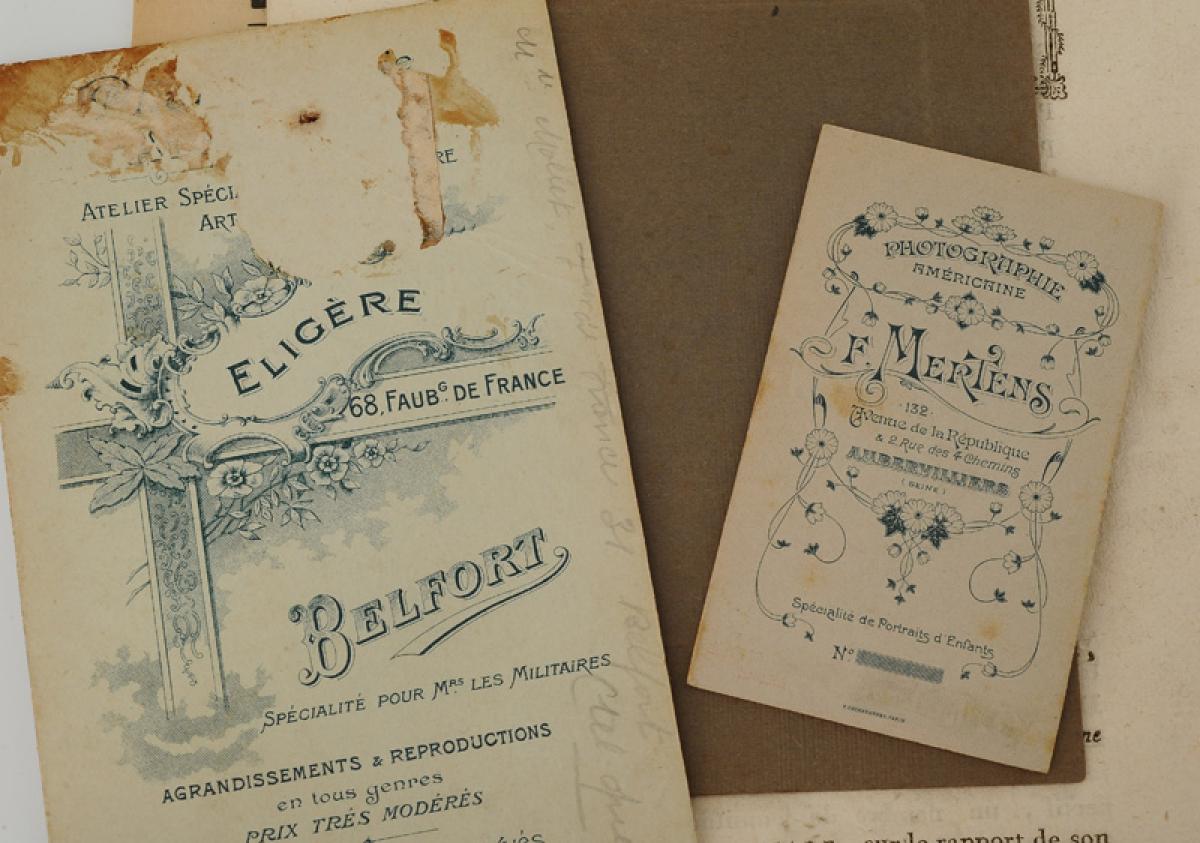 RE
ATELIER SPÉCI
ART
ELIGÈRE
68, FAUBG. DE FRANCE
BELFORT
SPÉCIALITÉ POUR MRS LES MILITAIRES
AGRANDISSEMENTS & REPRODUCTIONS
en tous genres
PRIX TRÉS MODÉRÉS
PHOTOGRAPHIE
AMÉRICAINE
F. MERTENS
132
Avenue de la République
& 2 Rue des 4 Chemins
AUBERVILLIERS
(SEINE)
Spécialité de Portraits d'Enfants
No.
ne
sur le rapport de son